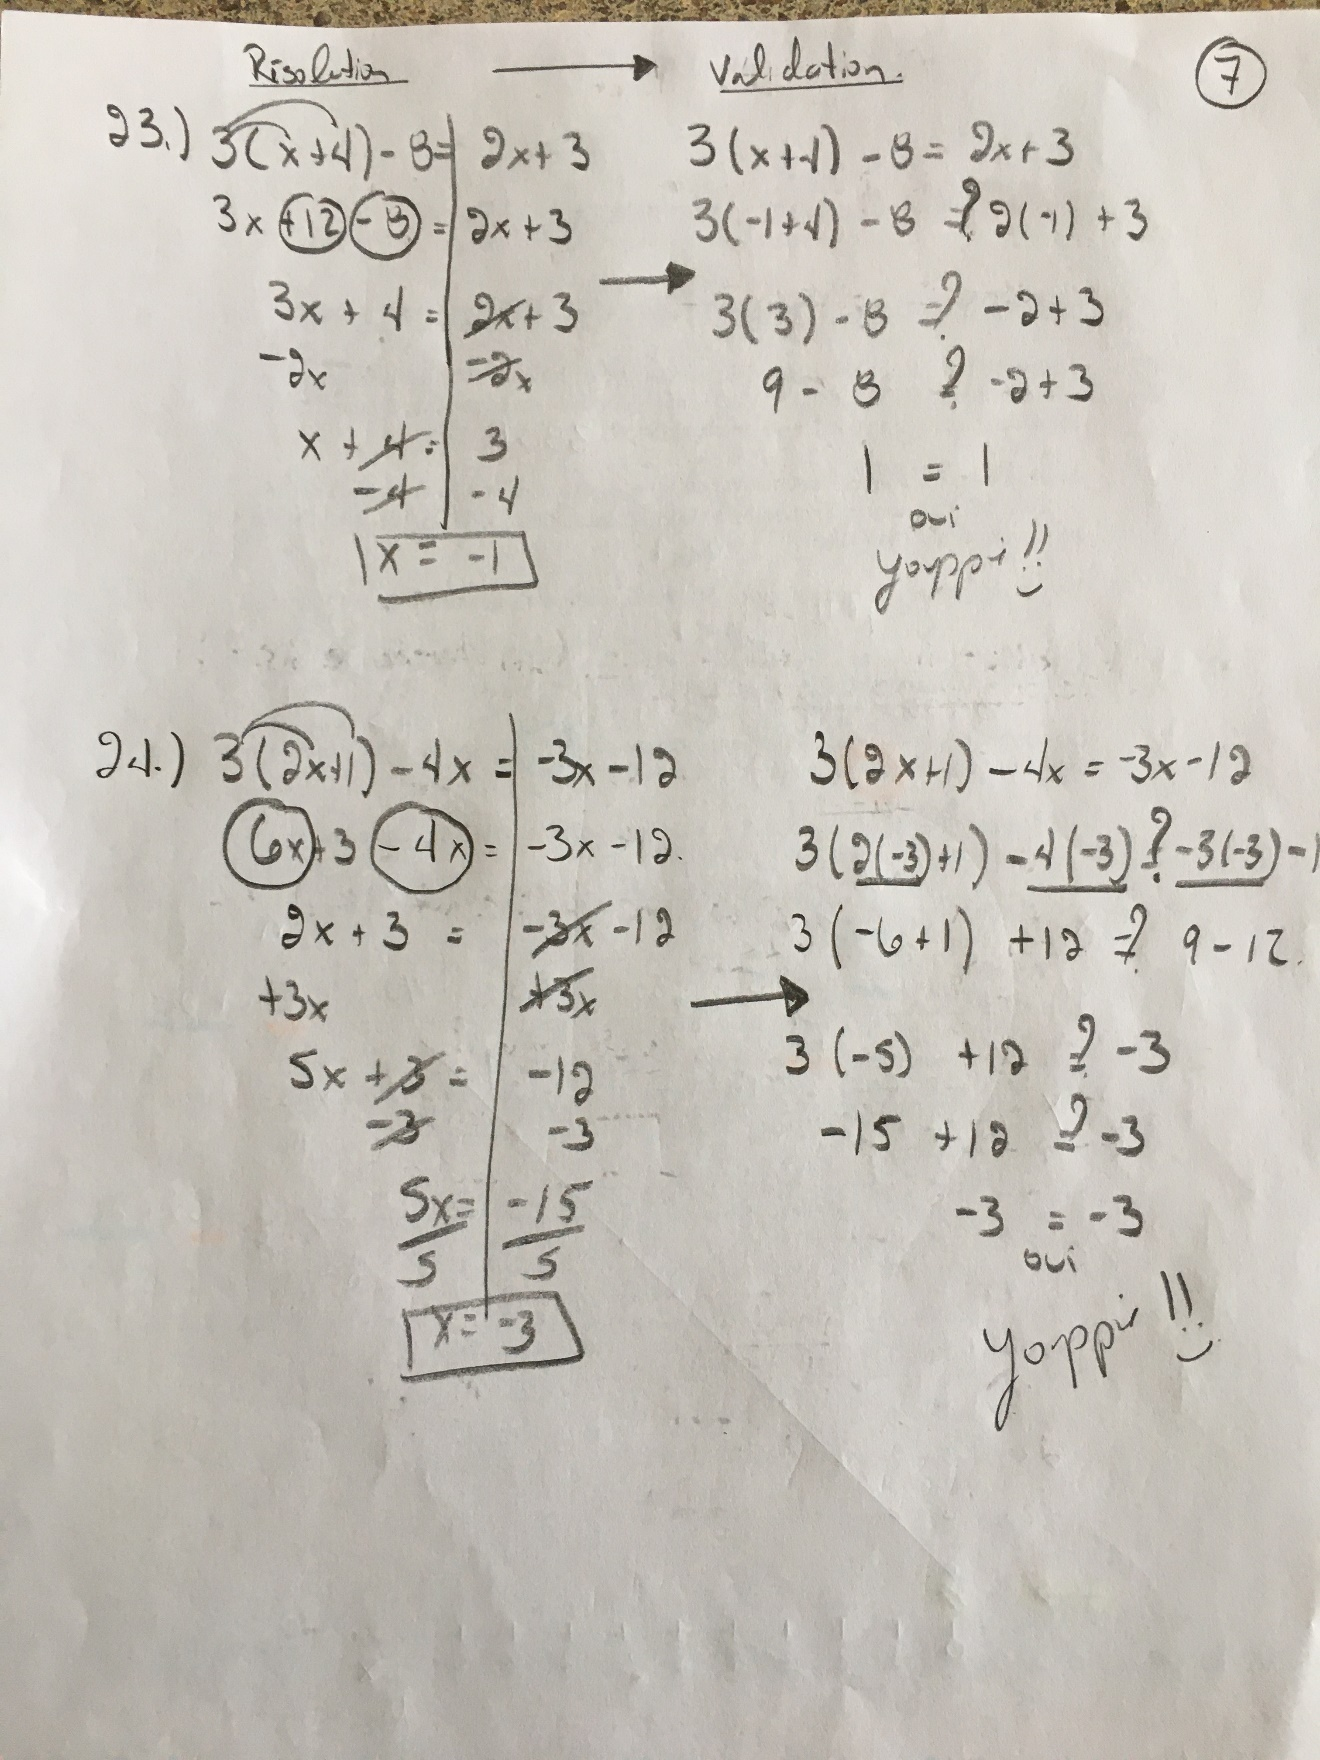 Résolution → Validation.
7
23.) 3(x+4) - 8 = 2x + 3
3x +12 - 8 = 2x + 3
3x + 4 = 2x + 3
-2x -2x
x + 4 = 3
-4 -4
1x = -1
3(x+4) - 8 = 2x + 3
3(-1+4) - 8 =? 2(-1) + 3
→ 3(3) - 8 =? -2 + 3
9 - 8 =? -2 + 3
1 = 1
oui
Youppi!!
24.) 3(2x+1) - 4x = -3x - 12
6x + 3 - 4x = -3x - 12.
2x + 3 = -3x - 12
+3x +3x
5x + 3 = -12
-3 -3
5x = -15
5 5
x = -3
3(2x+1) - 4x = -3x - 12
3(2(-3)+1) - 4(-3) =? -3(-3) - 1
3(-6+1) + 12 =? 9 - 12.
→ 3(-5) + 12 =? -3
-15 + 12 =? -3
-3 = -3
oui
Youppi!!